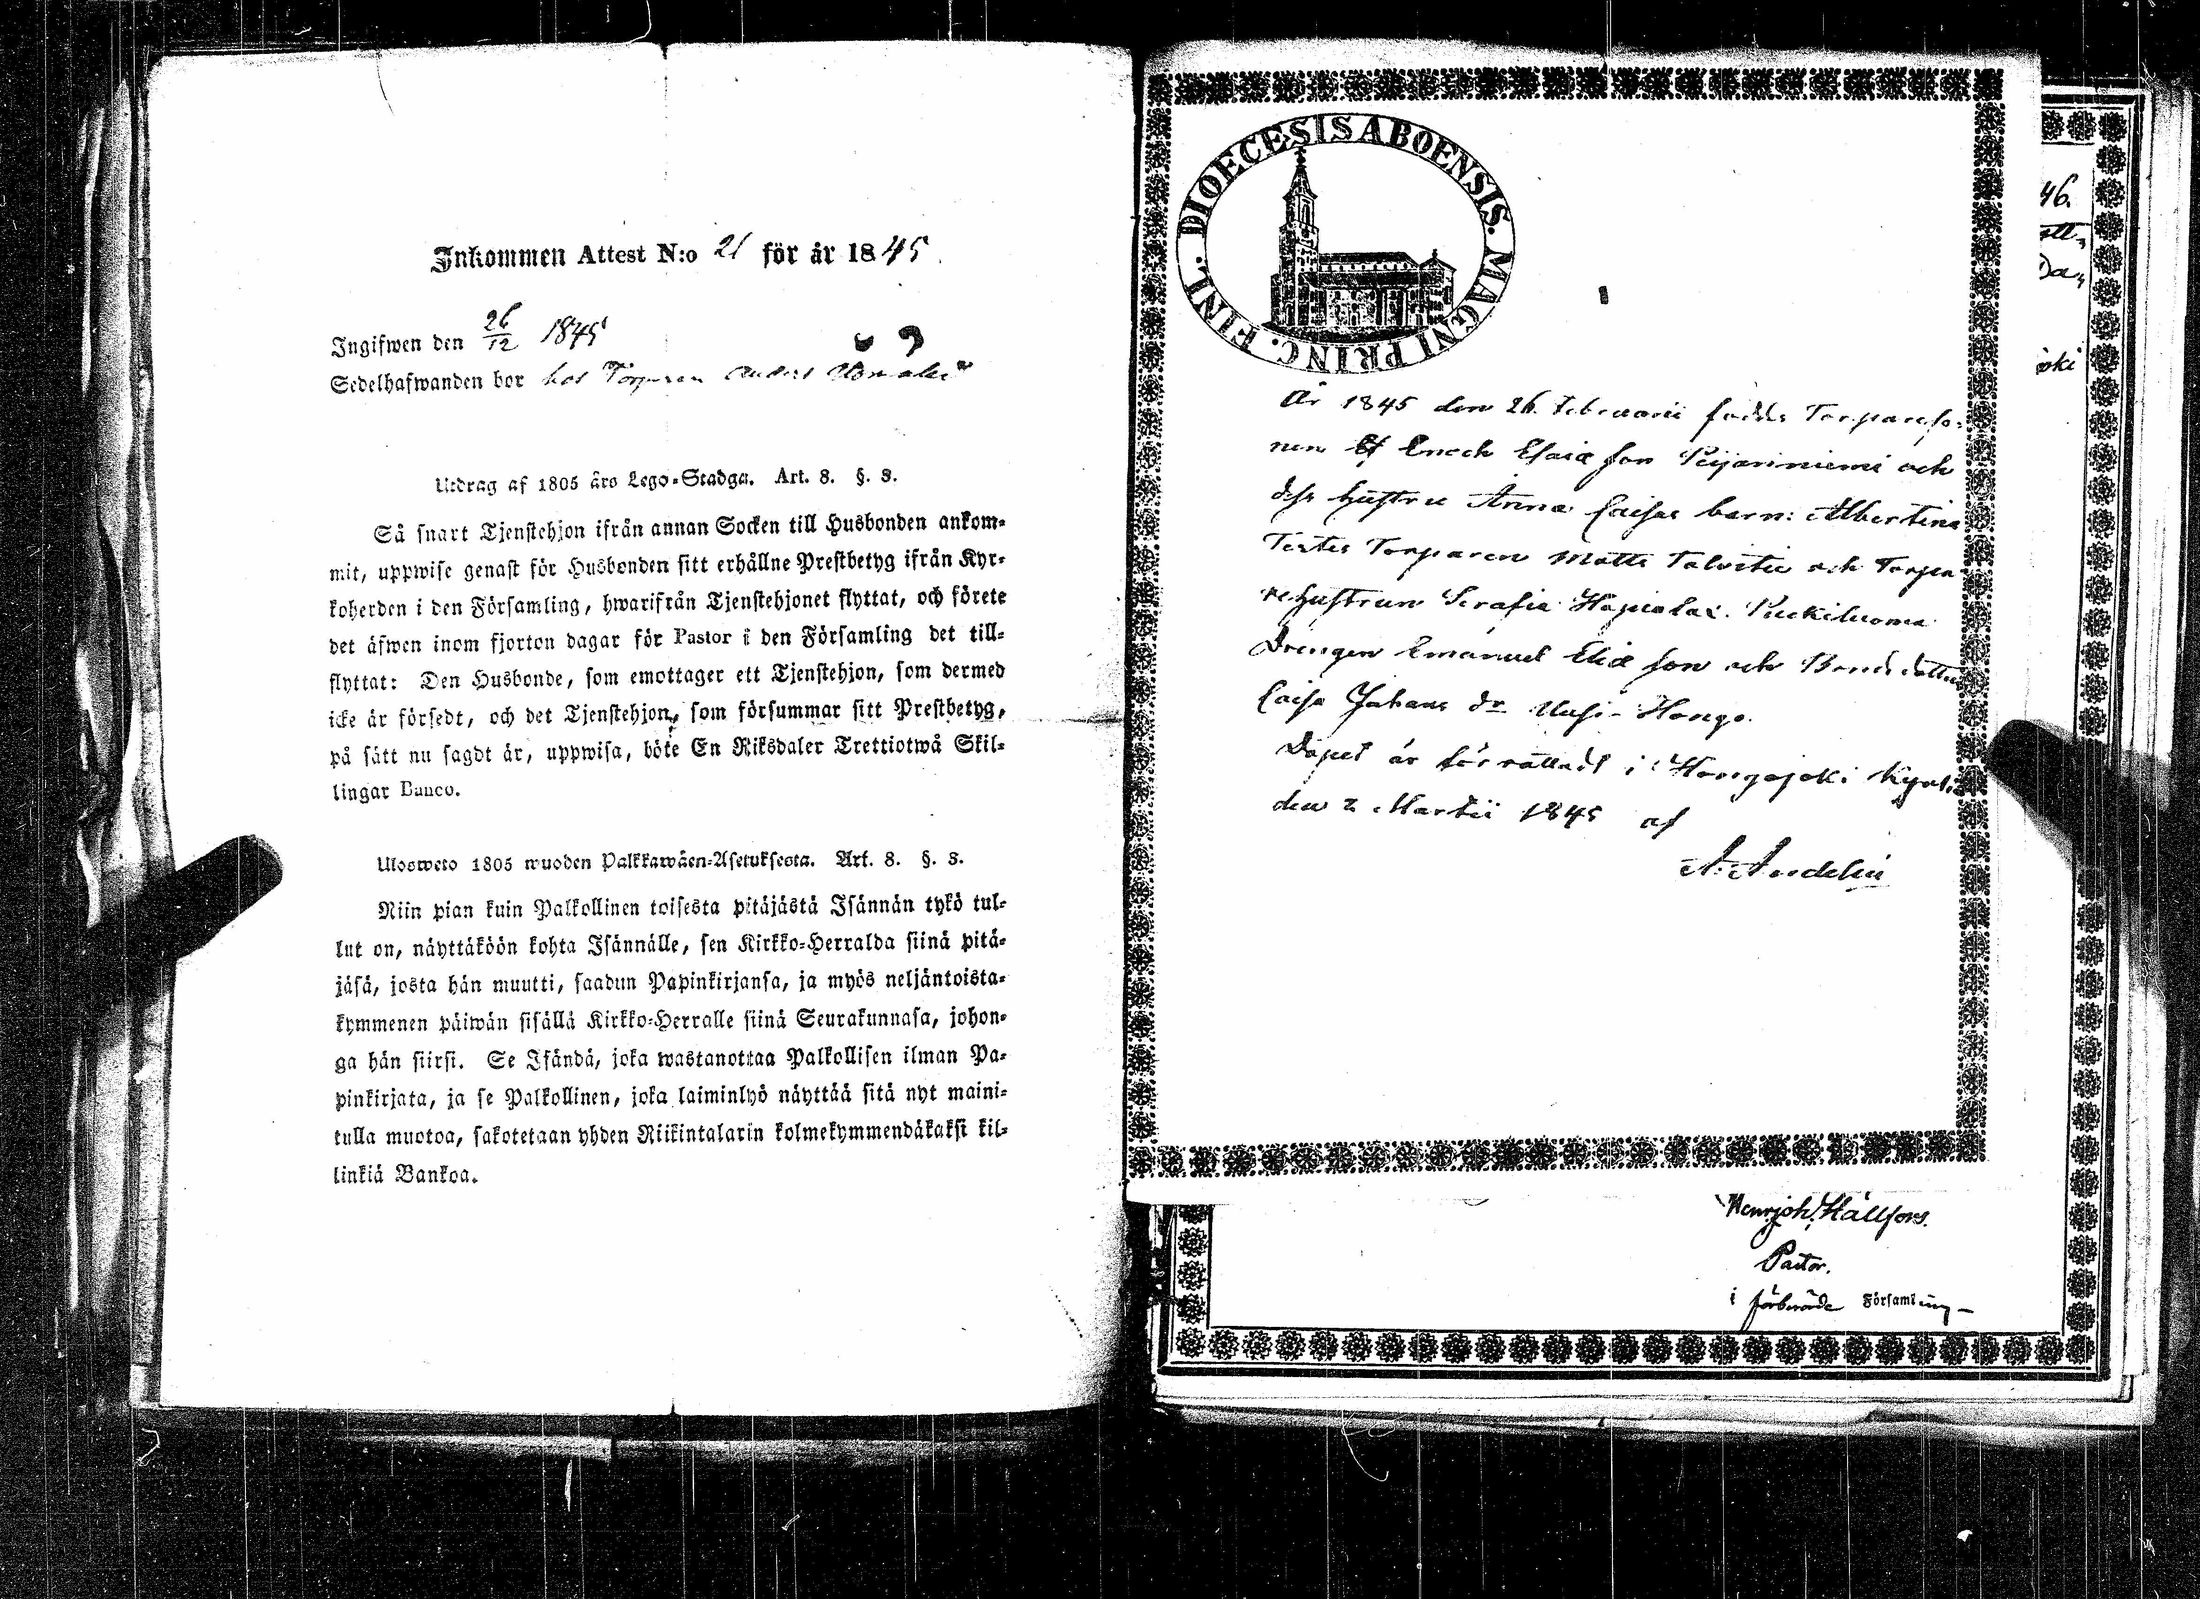 Inkommen Attest N:o 21 för år 1845.
Ingifwen den 26/12 1845
Sedelhafwanden bor hos Torparen Anders
Utdrag af 1805 års Lego-Stadga. Art. 8. §. 3.
Så snart Tjenstehjon ifrån annan Socken till Husbonden ankom-
mit, uppwise genast för Husbonden sitt erhållne Prestbetyg ifrån Kyr-
koherden i den Församling, hwarifrån Tjenstehjonet flyttat, och förete
det äfwen inom fjorton dagar för Pastor i den Församling det till-
flyttat: Den Husbonde, som emottager ett Tjenstehjon, som dermed
icke är försedt, och det Tjenstehjon, som försummar sitt Prestbetyg,
på sätt nu sagdt är, uppwisa, böte En Riksdaler Trettiotwå Skil-
lingar Banco.
Ulosweto 1805 wuoden Palkkawäen-Asetuksesta. Art. 8. §. 3.
Niin pian kuin Palkollinen toisesta pitäjästä Isännän tykö tul-
lut on, näyttäköön kohta Isännälle, sen Kirkko-Herralda siinä pitä-
jäsä, josta hän muutti, saadun Papinkirjansa, ja myös neljäntoista-
kymmenen päiwän sisällä Kirkko-Herralle siinä Seurakunnasa, johon-
ga hän siirsi. Se Isändä, joka wastanottaa Palkollisen ilman Pa-
pinkirjata, ja se Palkollinen, joka laiminlyö näyttää sitä nyt maini-
tulla muotoa, sakotetaan yhden Riikintalarin kolmekymmendäkaksi kil-
linkiä Bankoa.
DIOECESIS ABOENSIS. MAGNI PRINC. FINL.
År 1845 den 26. Februarii föddes Torpareso-
nen Enoch Esaiæ son Peijariniemi och
dess hustru Anna Caisas barn: Albertina
Testes Torparen Matts Talvitie och Torpa-
rehustrun Serafia Hapiala.
Drengen Emanuel Eliæ son och Bondedottren
Caisa Johans dr Uusi-Hongo.
Dopet är förrättadt i Hongojoki Kyrka
den 2 Martii 1845 af
A. Andelin
46.
Da-
Henr. Joh. Hällfors.
Pastor.
i förberörde Församling